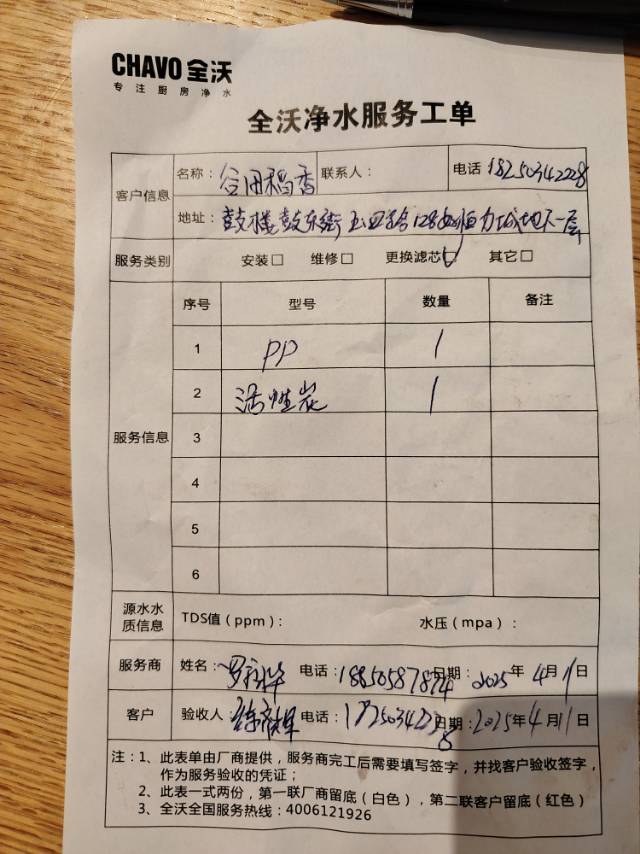 CHAVO 全沃
专注厨房净水
全沃净水服务工单
客户信息 名称：谷田稻香 联系人： 电话 18250342228
地址：鼓楼鼓东街 128 恒力城地下一层
服务类别 安装□ 维修□ 更换滤芯☑ 其它□
服务信息
序号 型号 数量 备注
1 PP 1
2 活性炭 1
3
4
5
6
源水水质信息 TDS值（ppm）： 水压（mpa）：
服务商 姓名： 电话：18850587874 日期：2025年4月11日
客户 验收人： 电话：18250342228 日期：2025年4月11日
注：1、此表单由厂商提供，服务商完工后需要填写签字，并找客户验收签字，
作为服务验收的凭证；
2、此表一式两份，第一联厂商留底（白色），第二联客户留底（红色）
3、全沃全国服务热线：4006121926